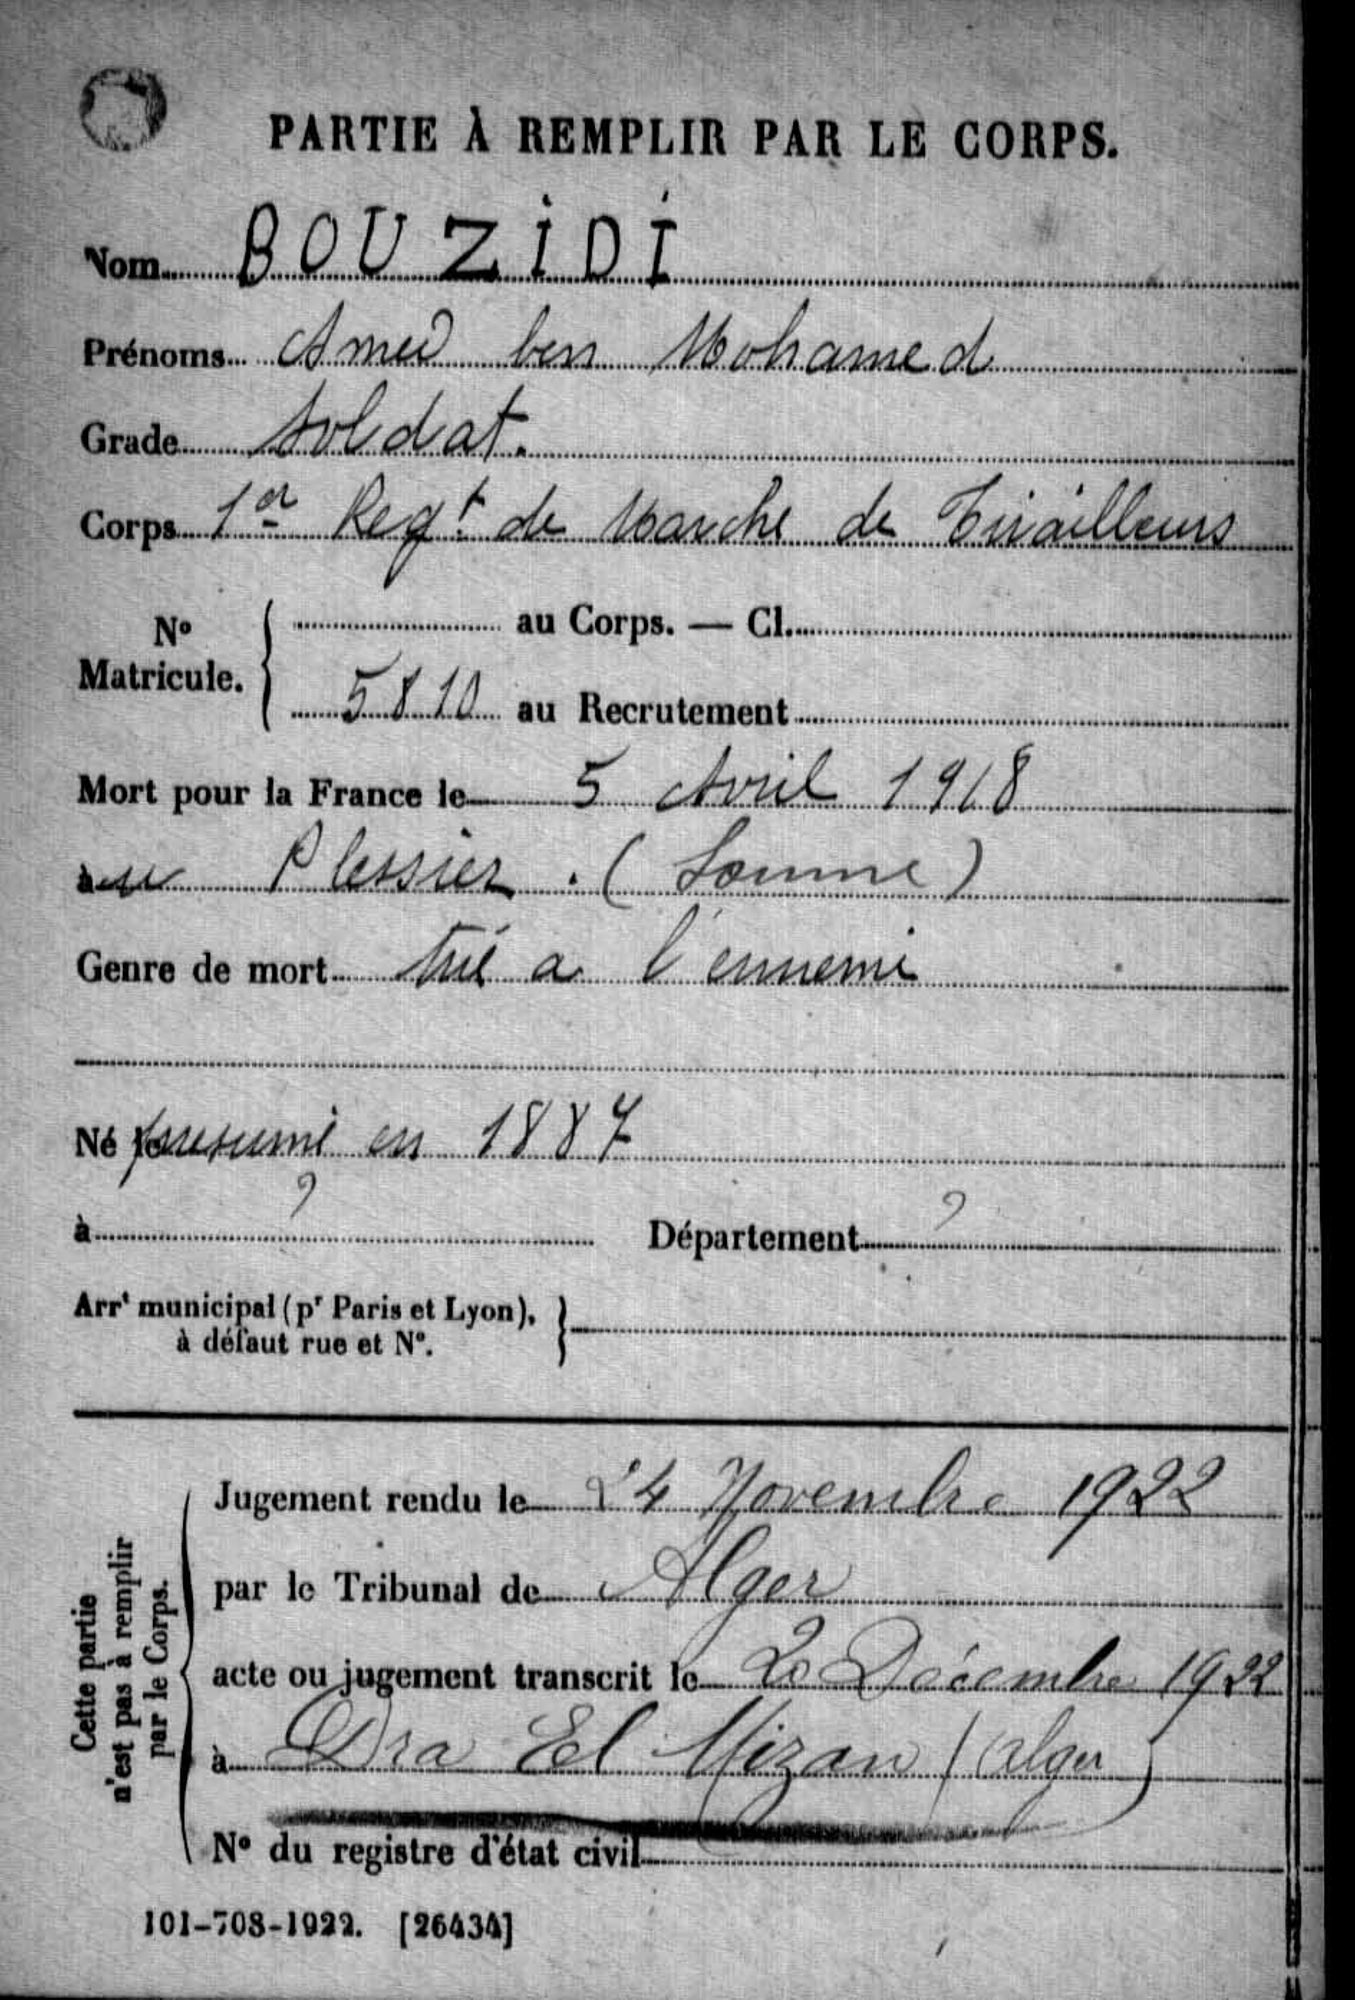 PARTIE À REMPLIR PAR LE CORPS.
Nom BOUZIDI
Prénoms Amed ben Mohamed
Grade Soldat.
Corps 1er Regt de Marche de Tirailleurs
No Matricule. { au Corps. — Cl.
5810 au Recrutement
Mort pour la France le 5 Avril 1918
au Plessier. (Somme)
Genre de mort tué a l'ennemi
Né presumé en 1887
à ? Département ?
Arrt municipal (pr Paris et Lyon), }
à défaut rue et No.
Cette partie
n'est pas à remplir
par le Corps.
Jugement rendu le 24 Novembre 1922
par le Tribunal de Alger
acte ou jugement transcrit le 20 Décembre 1922
à Dra El Mizan (Alger)
No du registre d'état civil
101-708-1922. [26434]